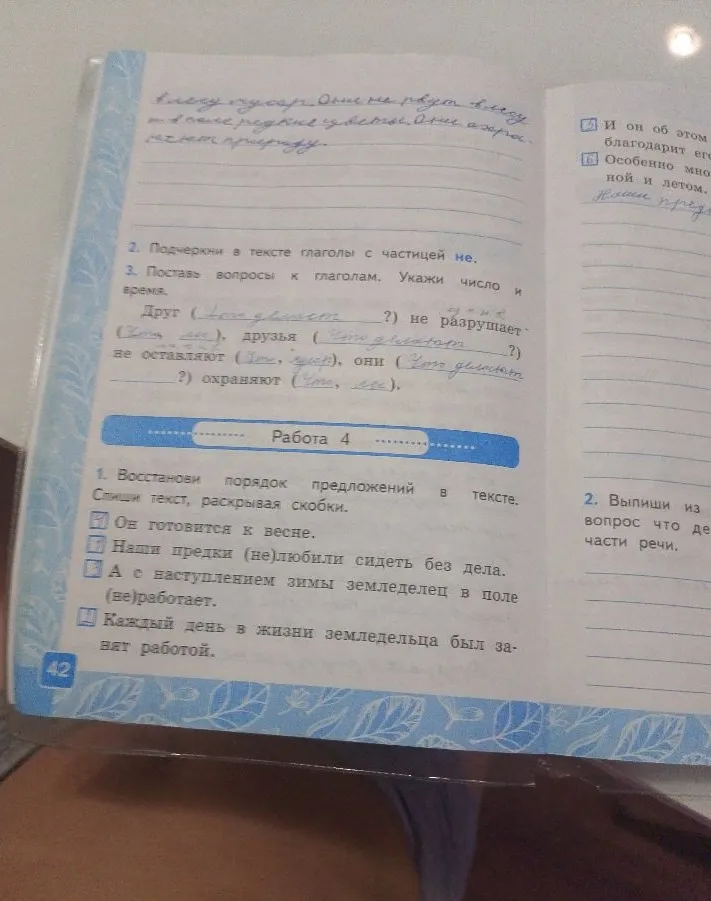 в лесу мусор. Они не рвут в лесу
и в поле редкие цветы. Они охра-
няют природу.
2. Подчеркни в тексте глаголы с частицей не.
3. Поставь вопросы к глаголам. Укажи число и
время.
Друг ( Что делает ?) не разрушает
( ), друзья ( Что делают ?)
не оставляют ( ), они ( Что делают
?) охраняют ( ).
Работа 4
1. Восстанови порядок предложений в тексте.
Спиши текст, раскрывая скобки.
4 Он готовится к весне.
1 Наши предки (не)любили сидеть без дела.
3 А с наступлением зимы земледелец в поле
(не)работает.
2 Каждый день в жизни земледельца был за-
нят работой.
42
5 И он об этом
благодарит его
6 Особенно мно
ной и летом.
Наши пред
2. Выпиши из
вопрос что де
части речи.